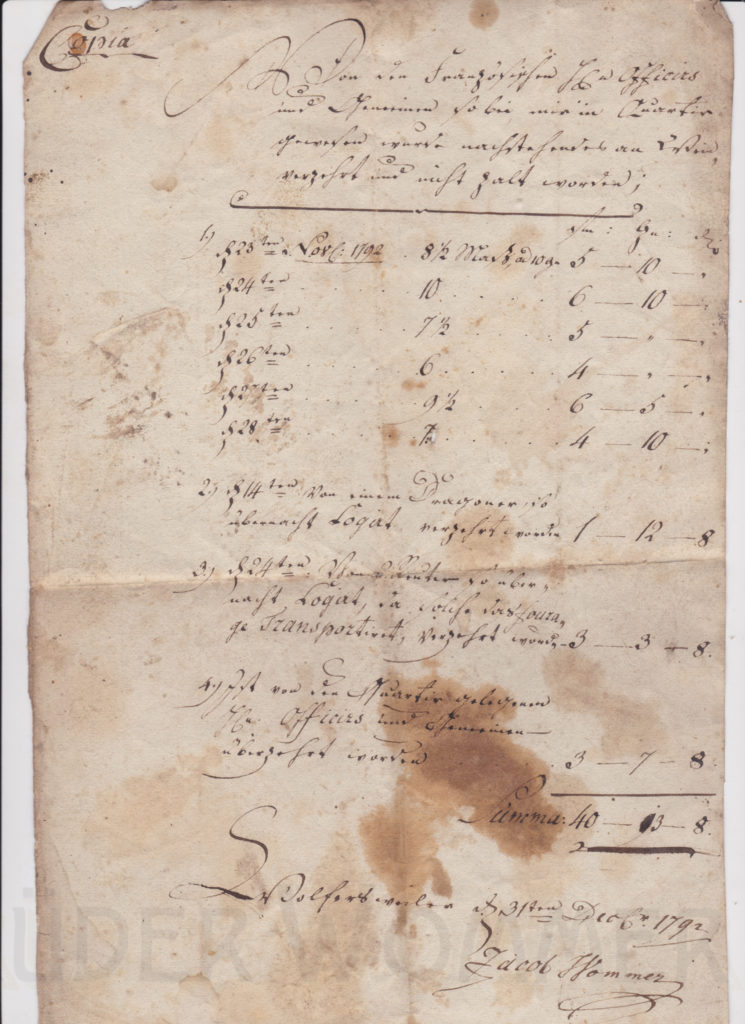 Copia
Von den Französischen H̅n Officirs
und Gemeinen so bei mir in Quartir
gewesen wurde nachstehendes an Wein
verzehrt und nicht zalt worden;
1) d 23ten Novb: 1792 . 8 ½ Maaß, ad 10 g. 5 — 10 — "
d 24ten . . . 10 . . . . 6 — 10 — "
d 25ten . . . 7 ½ . . . . 5 — " — "
d 26ten . . . 6 . . . . 4 — " — "
d 27ten . . . 9 ½ . . . . 6 — 5 — "
d 28ten . . . 7 . . . . 4 — 10 — "
2.) d 14ten Von einem Dragoner, so
übernacht Logirt verzehrt worden 1 — 12 — 8
3.) d 24ten. Von Reuter so über-
nacht Logirt, da solche das Foura-
ge Transportiret, verzehrt worden 3 — 3 — 8.
4.) Ist von den Quartir gelegenen
H̅n Officirs und Gemeinen
überzehrt worden . . . 3 — 7 — 8.
Summa: 40 — 13 — 8.
Wolfersweiler d 31ten Decbr. 1792
Jacob Wommer